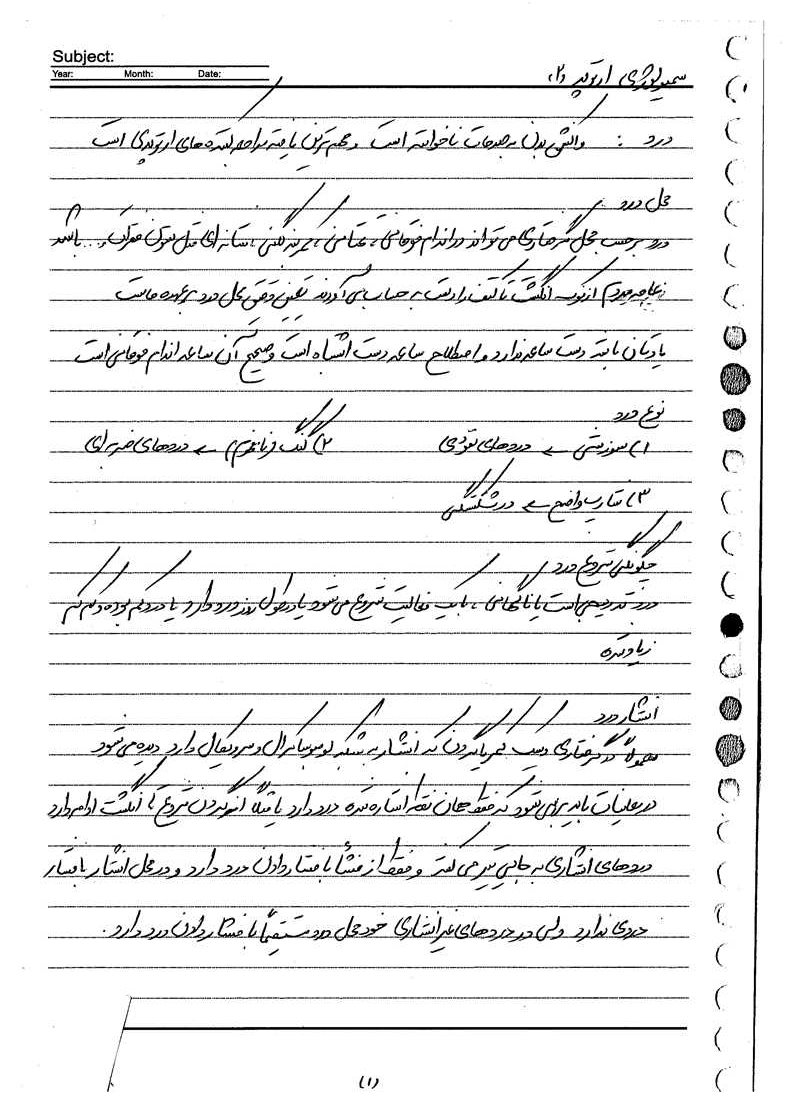 Subject:
Year: Month: Date:
سمیولوژی ارتوپدی (۲)
درد : واکنش بدن به صدمات ناخواسته است و مهم ترین یافته مراجعه کننده های ارتوپدی است
محل درد
درد بر حسب محل گرفتاری می تواند در اندام فوقانی، تحتانی، کمر، لگنی، شانه ای مثل ستون فقرات و... باشد
عامه مردم از نوک انگشت تا کتف را دست به حساب می آورند تعیین دقیق محل درد بر عهده ماست
یادتان باشد دست ساعد ندارد و اصطلاح ساعد دست اشتباه است و صحیح آن ساعد اندام فوقانی است
نوع درد
۱) سوزشی ← دردهای عودی ۲) گنگ و نامفهوم ← دردهای ضربه ای
۳) تیز و واضح ← در شکستگی
چگونگی شروع درد
درد تدریجی است یا ناگهانی، با یک فعالیت شروع می شود یا در طول روز درد دارد یا درد کم بوده و کم کم
زیاد شده
انتشار درد
معمولاً در گرفتاری دیسک کمر یا گردن که انتشار به شبکه لومبوساکرال و سرویکال دارد دیده می شود
در معاینات باید بررسی شود که فقط همان نقطه اشاره شده درد دارد یا مثلاً از گردن شروع تا انگشت ادامه دارد
دردهای انتشاری به جایی تیر می کشد و فقط از منشأ با فشار دادن درد دارد و در محل انتشار با فشار
دردی ندارد ولی در دردهای غیر انتشاری خود محل درد مستقیماً با فشار دادن درد دارد.
(۱)